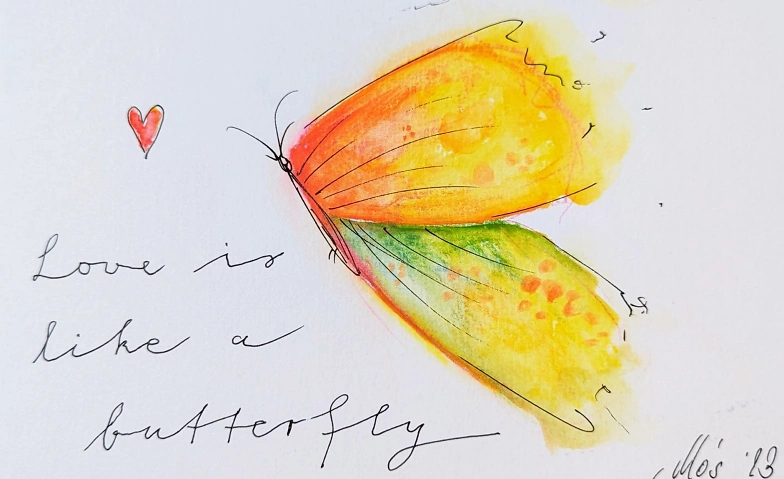 Love is
like a
butterfly
Mo's '23